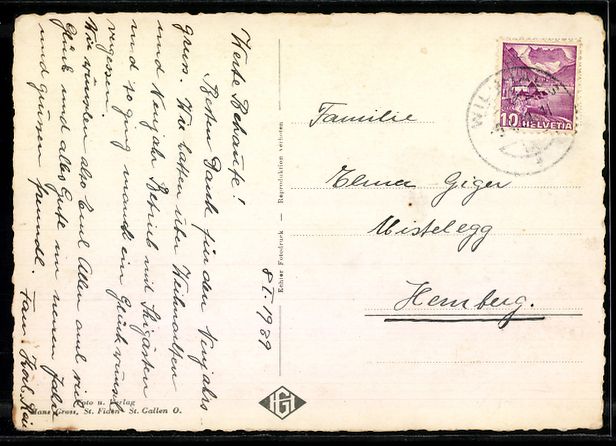 Werte Bekannte!
Besten Dank für den Neujahrs
gruss. Wir hatten über Weihnachten
und Neujahr Betrieb mit Skigästen
und so ging manch ein Glückwunsch
vergessen.
Wir wünschen also Euch Allen auch viel
Glück und alles Gute im neuen Jahr
und grüssen freundl. Fam.
8.I.1939
Echter Fotodruck — Reproduktion verboten
Foto u. Verlag
Hans Gross, St. Fiden - St. Gallen O.
HG
WIL
10 HELVETIA
Familie
Elmer Giger
Mistelegg
Hemberg.